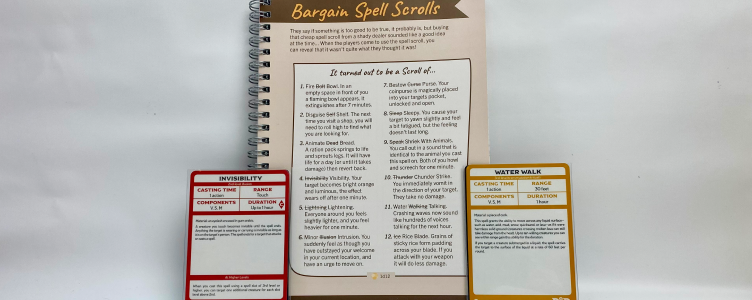 Bargain Spell Scrolls
They say if something is too good to be true, it probably is, but buying
that cheap spell scroll from a shady dealer sounded like a good idea
at the time... When the players come to use the spell scroll, you
can reveal that it wasn't quite what they thought it was!
It turned out to be a Scroll of...
1. Fire Bolt Bowl. In an
empty space in front of you
a flaming bowl appears. It
extinguishes after 7 minutes.
2. Disguise Self Shelf. The next
time you visit a shop, you will
need to roll high to find what
you are looking for.
3. Animate Dead Bread.
A ration pack springs to life
and sprouts legs. It will have
life for a day or until it takes
damage then revert back.
4. Invisibility Visibility. Your
target becomes bright orange
and luminous, the effect
wears off after one minute.
5. Lightning Lightening.
Everyone around you feels
slightly lighter, and you feel
heavier for one minute.
6. Minor Illusion Intrusion. You
suddenly feel as though you
have outstayed your welcome
in your current location, and
have an urge to move on.
7. Bestow Curse Purse. Your
coinpurse is magically placed
into your targets pocket,
unlocked and open.
8. Sleep Sleepy. You cause your
target to yawn slightly and feel
a bit fatigued, but the feeling
doesn't last long.
9. Speak Shriek With Animals.
You call out in a sound that is
identical to the animal you cast
this spell on. Both of you howl
and scream for one minute.
10. Thunder Chunder Strike.
You immediately vomit in
the direction of your target.
They take no damage.
11. Water Walking Talking.
Crashing waves now sound
like hundreds of voices
talking for the next hour.
12. Ice Rice Blade. Grains of
sticky rice form padding
across your blade. If you
attack with your weapon
it will do less damage.
INVISIBILITY
CASTING TIME
1 action
RANGE
Touch
COMPONENTS
V, S, M
DURATION
Up to 1 hour
WATER WALK
CASTING TIME
1 action
RANGE
30 feet
COMPONENTS
V, S, M
DURATION
1 hour